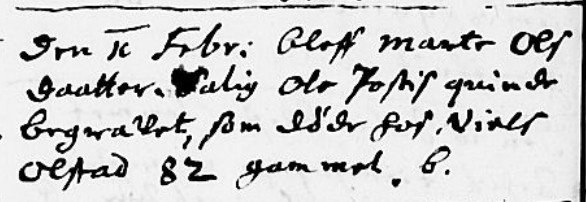 Den 11 Febr: bleff Marte Ols
daatter. Salig Ole Postis quinde
begravet, som døde hos Niels
Olstad 82 gammel. b.